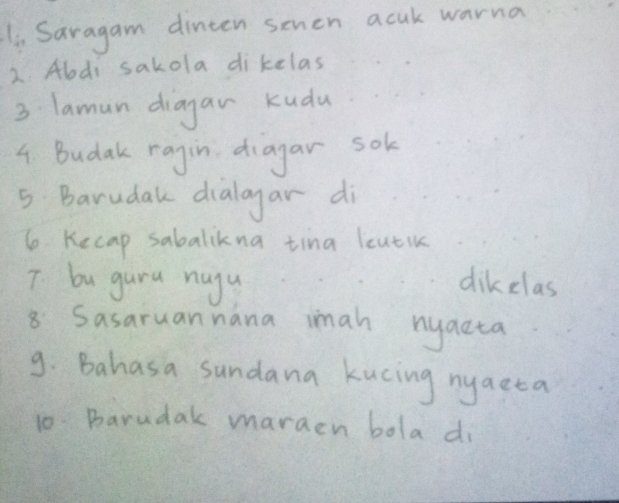 1. Saragam dinten senen acuk warna . . . .
2. Abdi sakola di kelas . . .
3. lamun diajar kudu . . . .
4. Budak rajin diajar sok . . . .
5. Barudak dialajar di . . . . .
6. Kecap sabalikna tina leutik . . . .
7. bu guru nuju . . . . . . dikelas
8. Sasaruannana imah nyaeta . . .
9. Bahasa sundana kucing nyaeta . . .
10. Barudak maraen bola di . . .